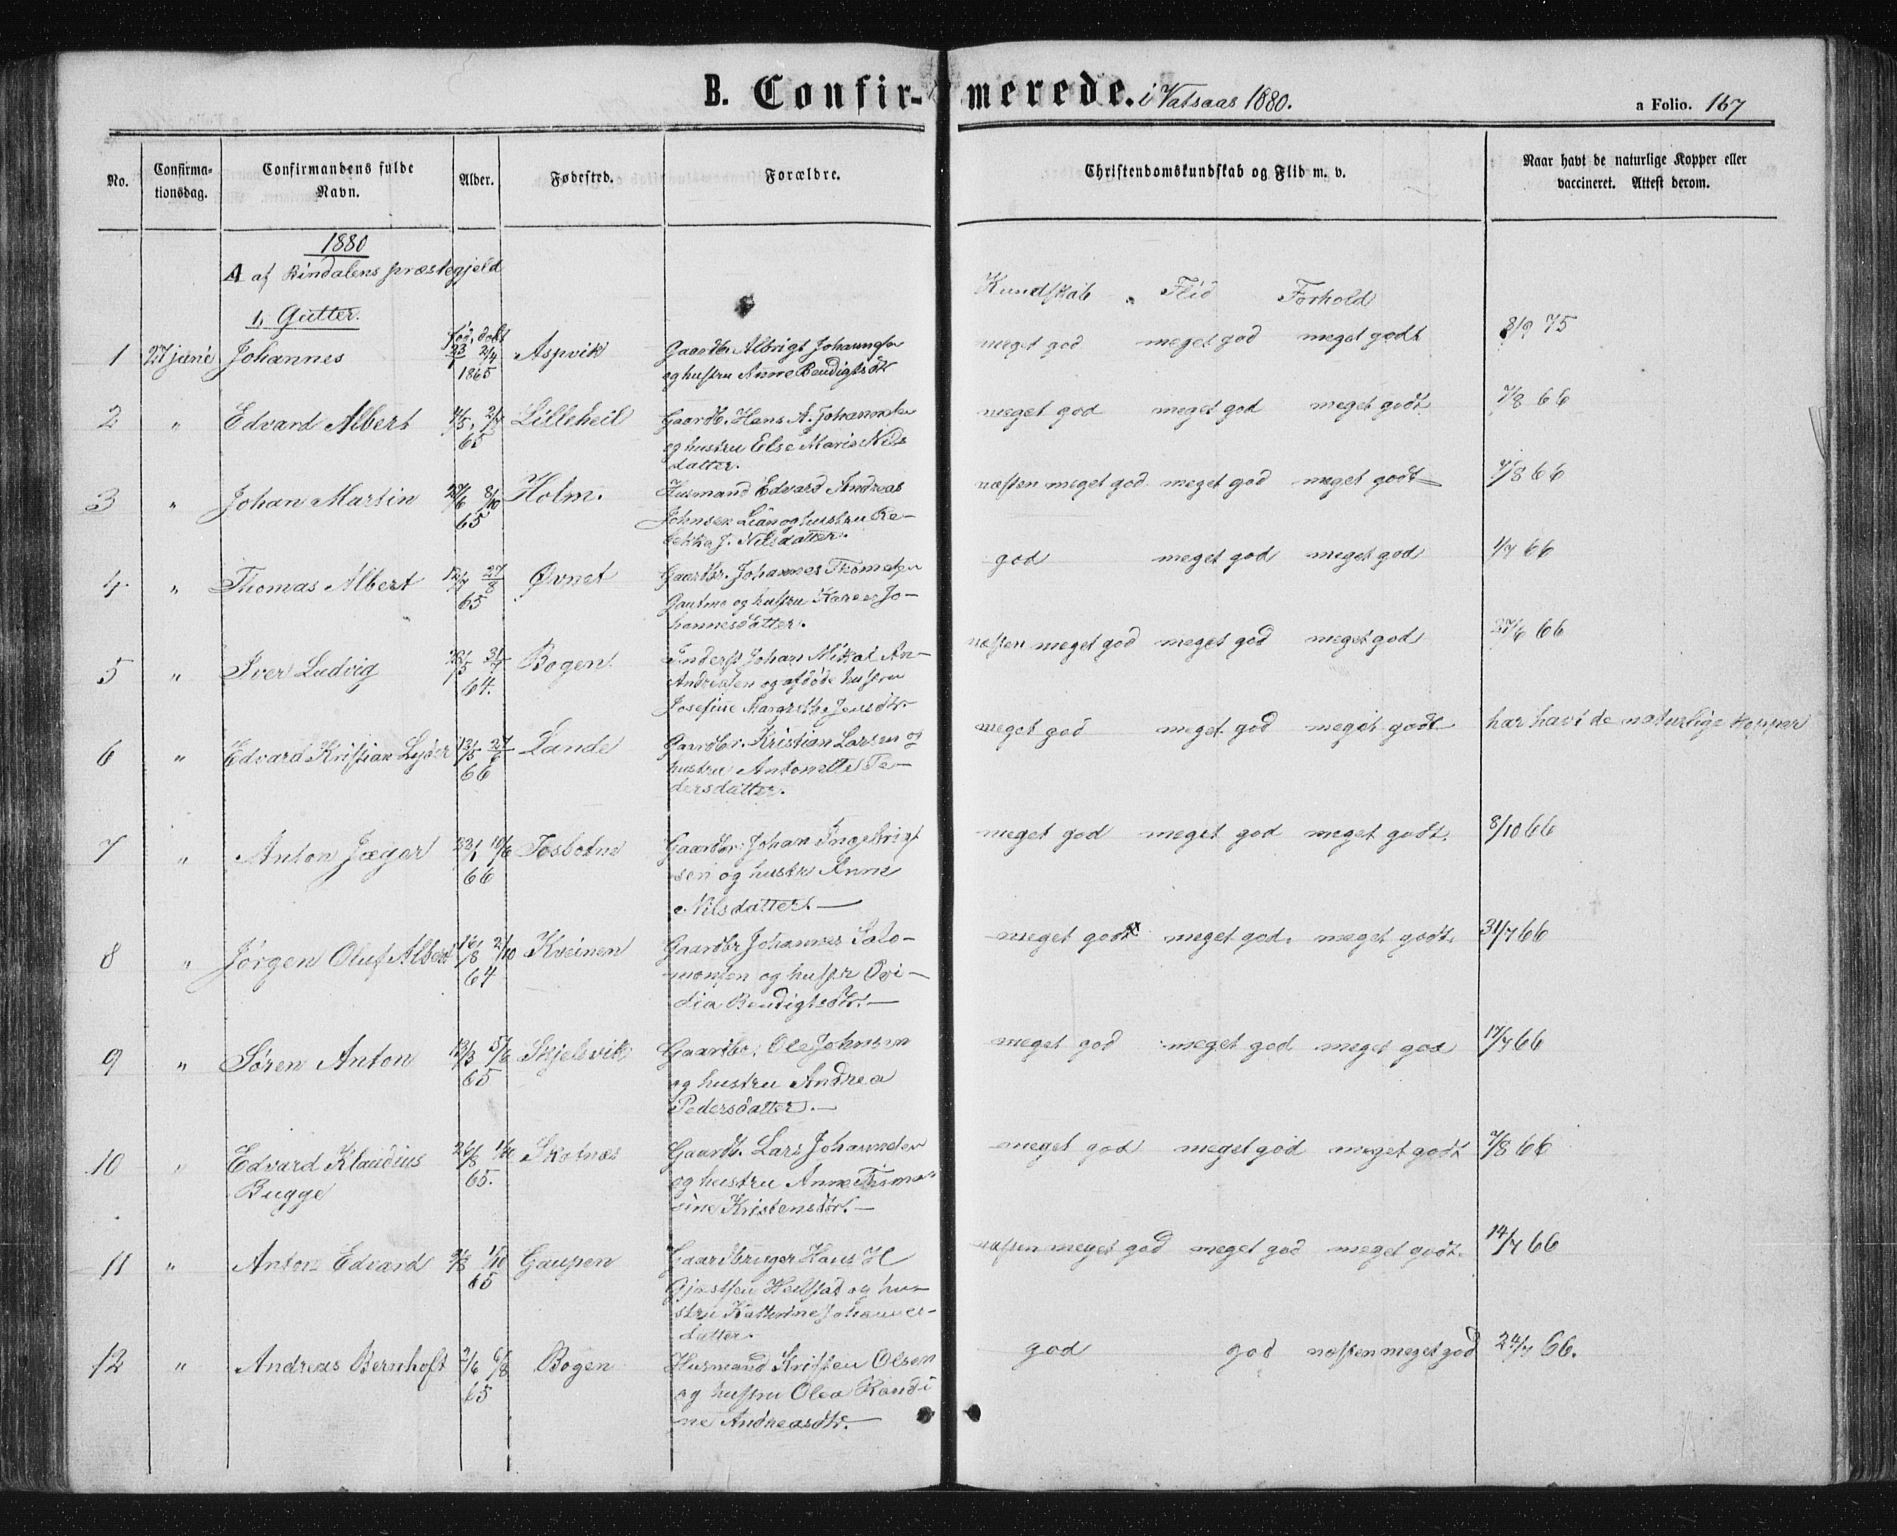 B. Confir- merede. i Vatsaas 1880.
a Folio. 167
No.
Confirma-
tionsdag.
Confirmandens fulde
Navn.
Alder.
Fødested.
Forældre.
Christendomskundskab og Flid m. v.
Naar havt de naturlige Kopper eller
vaccineret. Attest derom.
1880
A af Bindalens præstegjeld
1, Gutter.
Kundskab Flid Forhold
1 27 juni Johannes 1865 Aspvik Gaardbr. Albrigt
og hustru Anne Bendigtsdtr
meget god meget god meget godt 8/9 75
2 " Edvard Albert 65 Lilleheil Gaardb. Hans A. Johannesen
og hustru Else Maria Nils
datter.
meget god meget god meget godt 7/8 66
3 " Johan Martin 27/6 8/10 65 Holm. Husmand Edvard Andreas
Johnsen Lian og hustru Re-
bekka J. Nilsdatter.
næsten meget god meget god meget godt 7/8 66
4 " Thomas Albert 27/8 65 Øvnet Gaardbr. Johannes Thomesen
og hustru Karen Jo-
hannesdatter.
god meget god meget god 4/7 66
5 " Iver Ludvig 64. Bogen Inderst Johan Mikal An-
Andreasen og afdøde hustru
Josefine Margrethe Jensdtr.
næsten meget god meget god meget god 27/6 66
6 " Edvard Kristian Lyder 13/5 27/6 66 Lande Gaardbr. Kristian Larsen og
hustru Antonette Pe-
dersdatter.
meget god meget god meget godt har havt de naturlige Kopper
7 " Anton Jæger 23/1 10/6 66 Tosbotne Gaardbr. Johan Ingebrigt
sen og hustru Anne
Nilsdatter. —
meget god meget god meget godt. 8/10 66
8 " Jørgen Oluf Albert 16/8 2/10 64 Kveinen Gaardbr Johannes Salo-
monsen og hustr Ovi-
dia Bendigtsdtr. —
meget godt meget god. meget godt. 31/7 66
9 " Søren Anton 13/3 5/6 65 Skjelsvik Gaardbr. Ole Johnsen
og hustru Andrea
Pedersdatter. —
meget god meget god meget god 17/7 66
10 " Edvard Klaudius
Bugge
26/8 65. Skotnes Gaardb. Lars Johannesen
og hustru Anne Thoma-
sine Kristensdtr. —
meget god meget god meget godt 7/8 66
11 " Anton Edvard 9/8 1/10 65 Gaupen Gaardbruger Hans H
Heilstad og hu-
stru Katherine Johannes-
datter.
næsten meget god meget god meget godt. 14/7 66
12 " Andreas Bernhoft 2/6 6/8 65 Bogen Husmand Kristen Olsen
og hustru Olea Randi
ne Andreasdtr. —
god god næsten meget god 24/7 66.